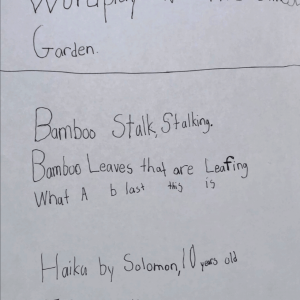 Wordplay
Garden.
Bamboo Stalk, Stalking.
Bamboo Leaves that are Leafing
What A blast this is
Haiku by Solomon, 10 years old